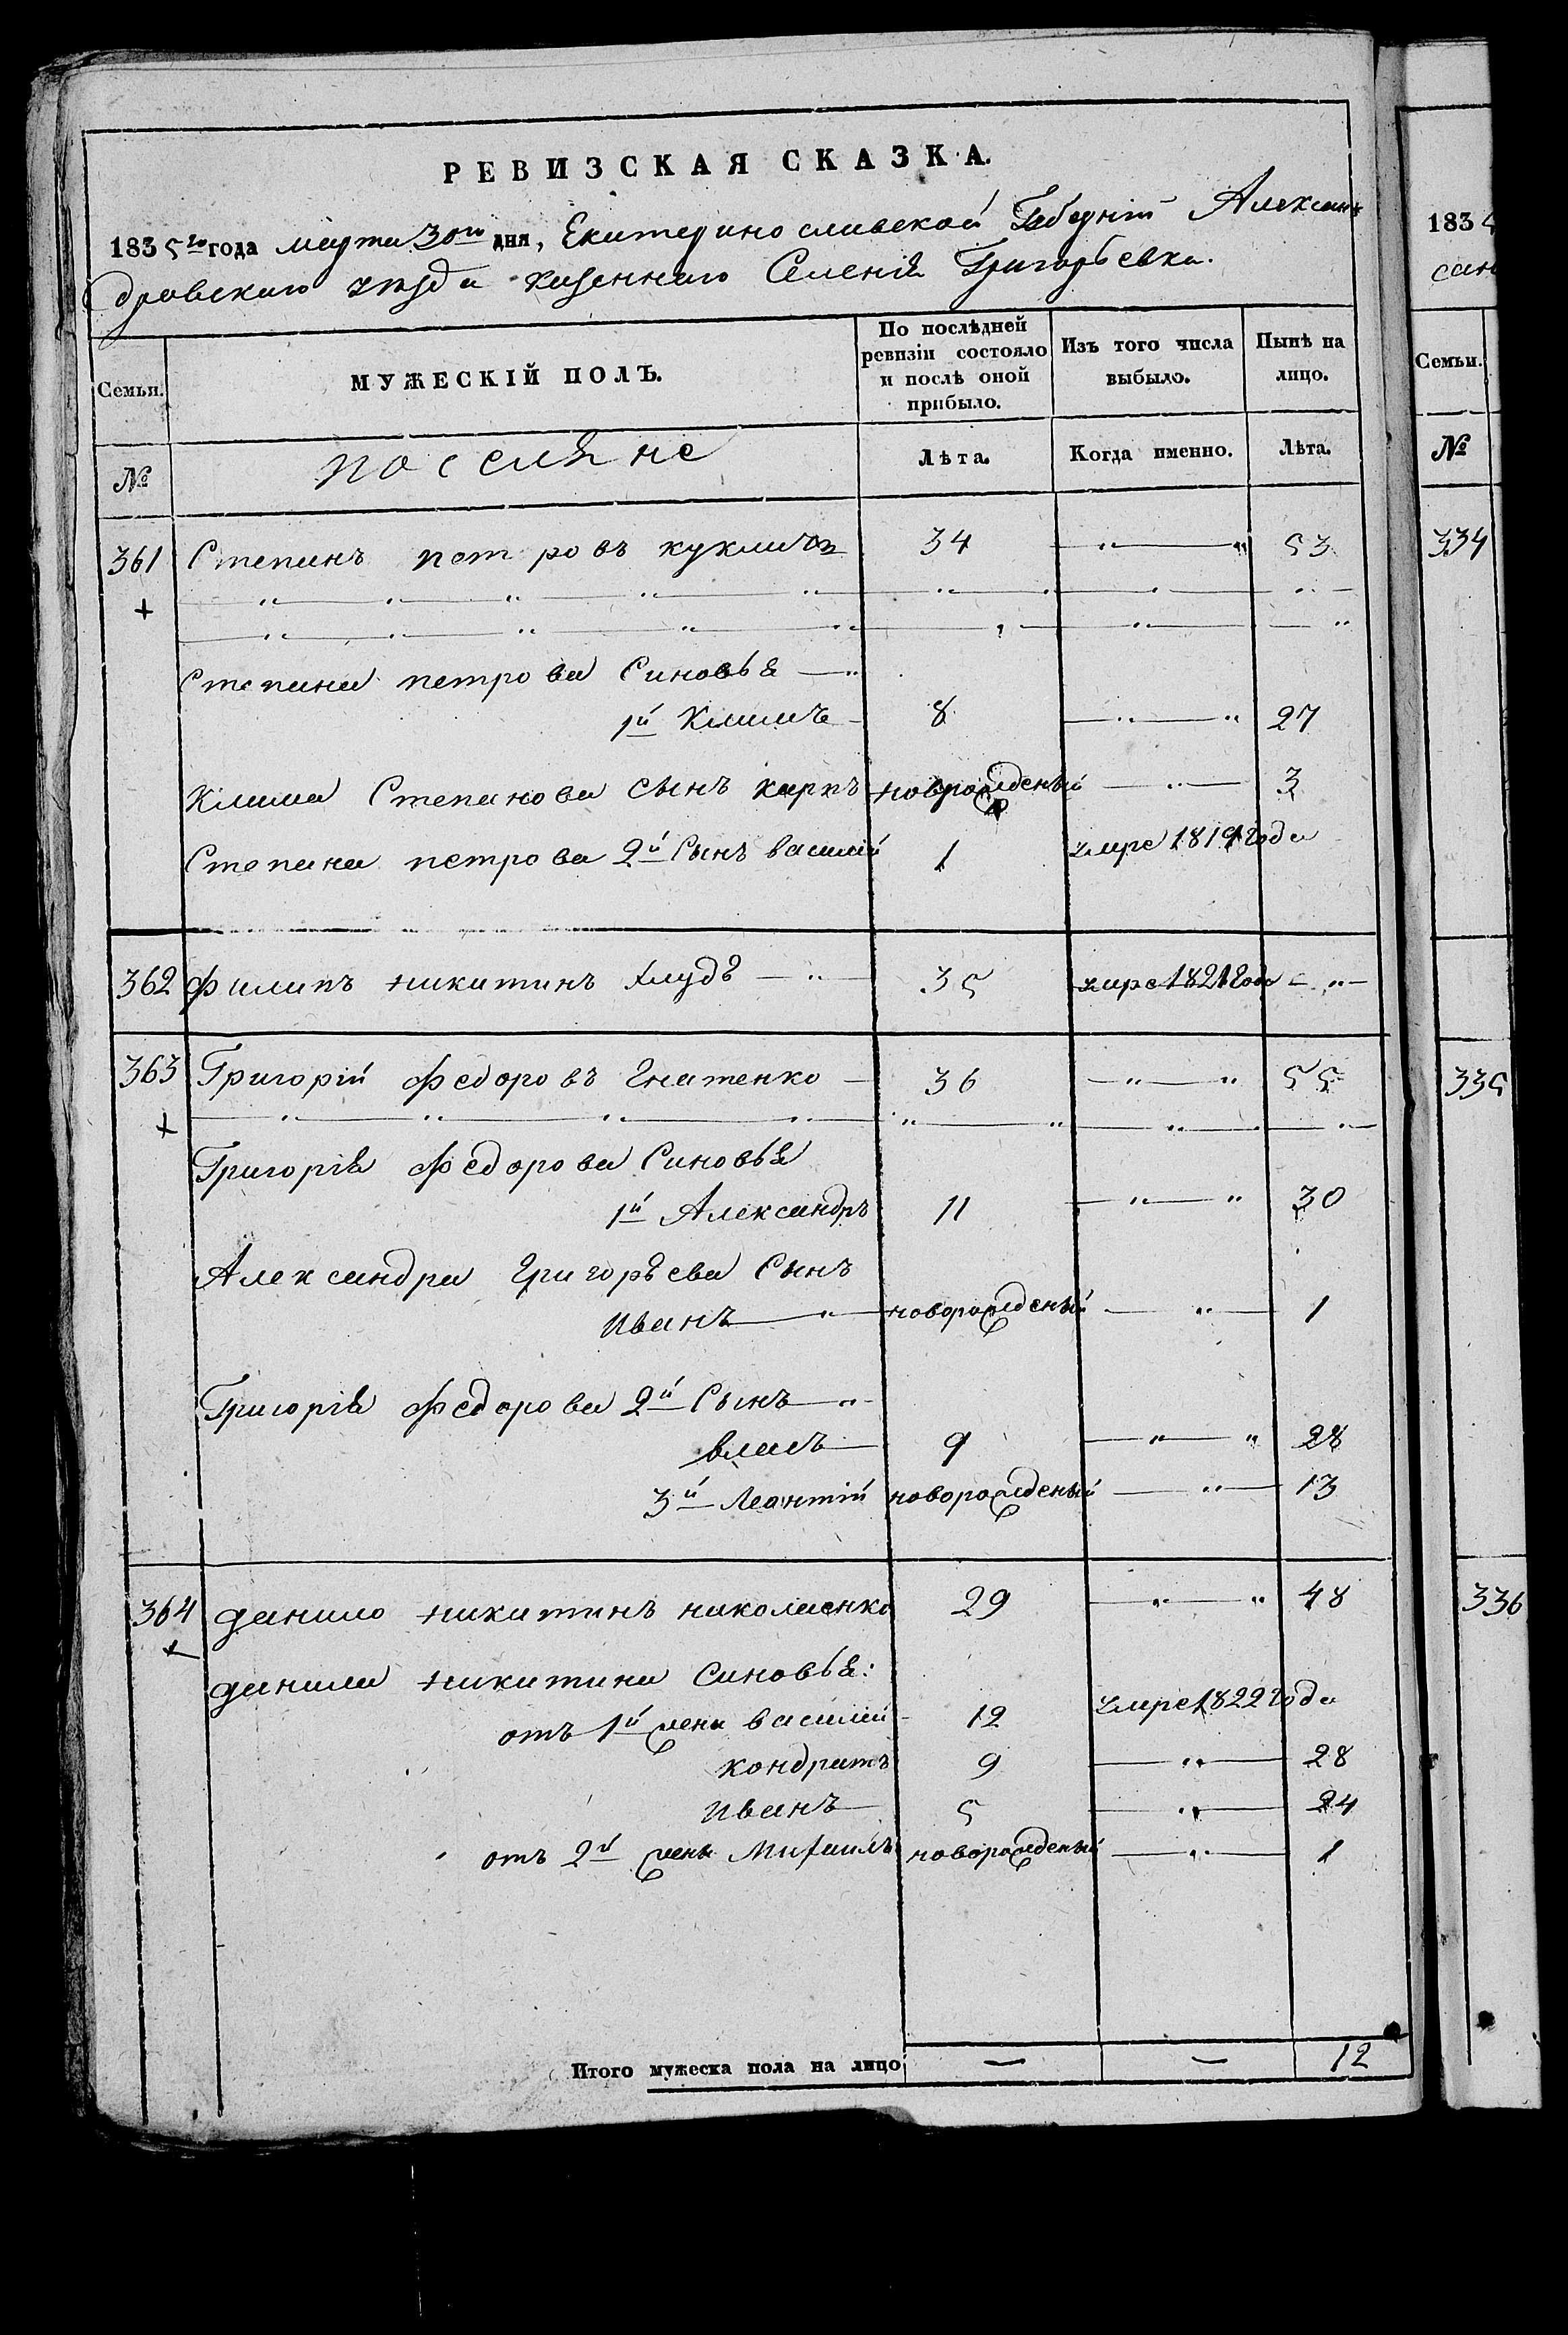 РЕВИЗСКАЯ СКАЗКА.
1835го года марта 30го дня, Екатеринославской Губерніи Алексан-
дровскаго уезда казеннаго Селенія Григорьевки.
Семьи. МУЖЕСКІЙ ПОЛЪ. По послѣдней ревизіи состояло и послѣ оной прибыло. Изъ того числа выбыло. Нынѣ на лицо.
№ поселяне Лѣта. Когда именно. Лѣта.
361 Степанъ петровъ 34 53
Степана петрова Синовья
1й Климъ 8 27
Клима Степанова сынъ карпъ новрожденый 3
Степана петрова 2й Сынъ василій 1 умре 1819 года
362 филипъ никитинъ Хлудъ 35 умре 1821 года
363 Григорій федоровъ Гнатенко 36 55
Григорія федорова Синовья
1й Александръ 11 30
Александра григорьева Сынъ
иванъ новорожденый 1
Григорія федорова 2й Сынъ
власъ 9 28
3й Леонтій новорожденый 13
364 данило никитинъ николаенко 29 48
данила никитина Синовья:
отъ 1й жены василій 12 умре 1822 года
кондратъ 9 28
иванъ 5 24
отъ 2й жены Михаилъ новорожденый 1
Итого мужеска пола на лицо 12
183
сан
Семьи.
№
334
335
336